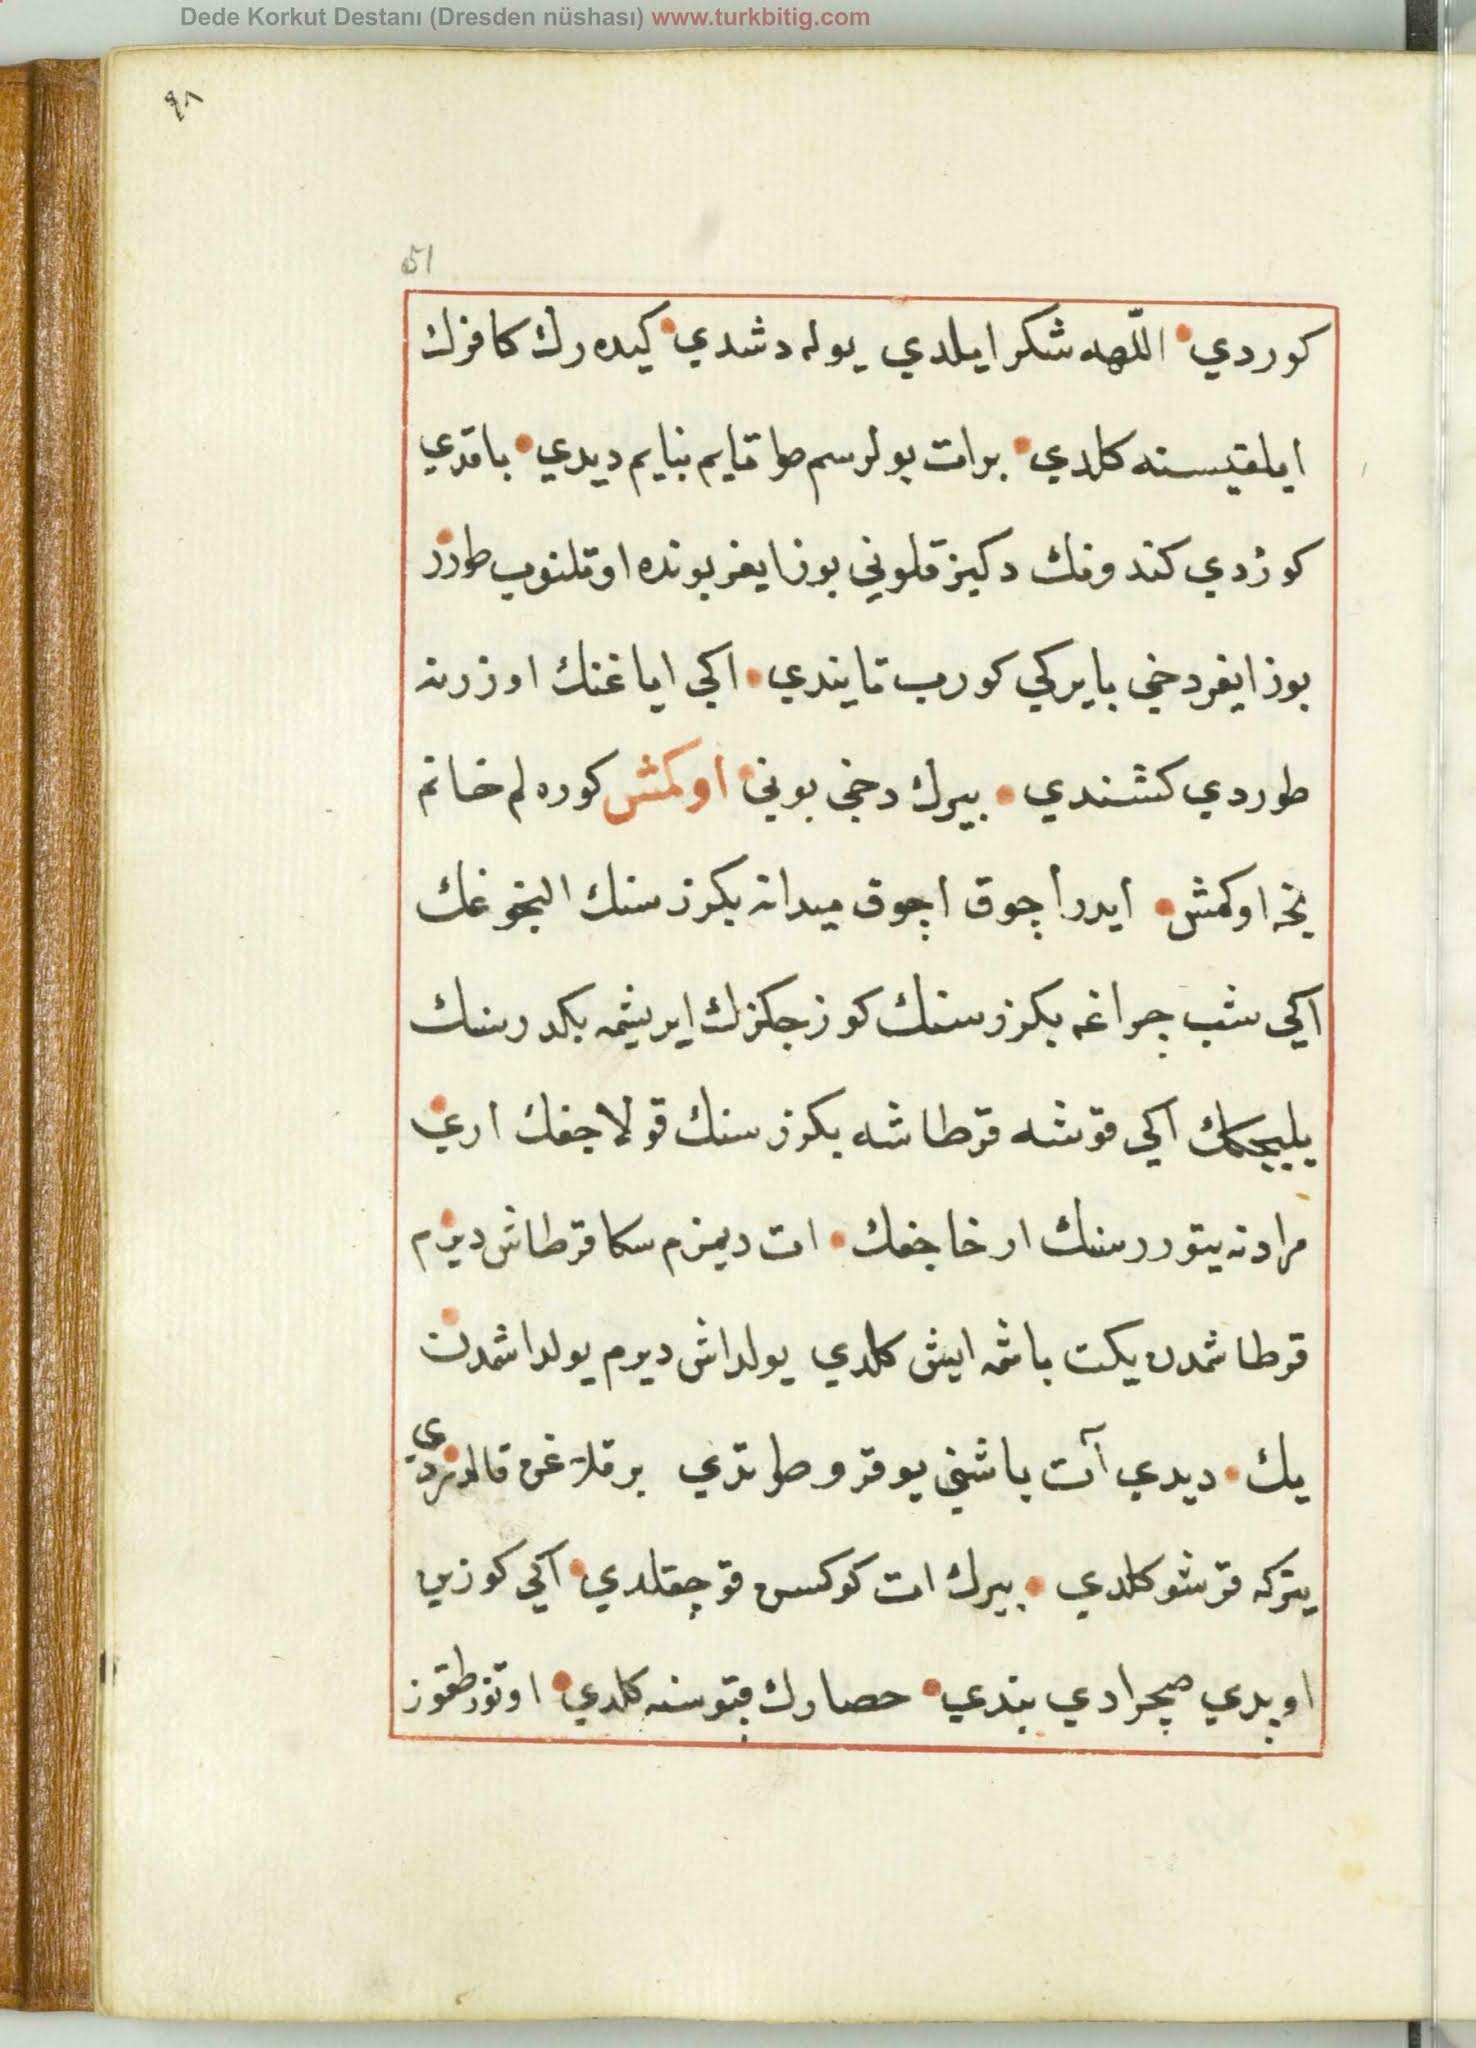 Dede Korkut Destanı (Dresden nüshası) www.turkbitig.com
٩٨
51
كوردي اللّهه شكر ايلدي يوله دشدي كيده رك كافرك
ايلقيسنه كلدي برات بولرسم طوتايم بنايم ديدي باقدي
كوردي كندونك دكيز قلوني بوز ايغر بونده اوتلنوب طورر
بوز ايغر دخي بايركي كورب تانيدي اكي اياغنك اوزرنه
طوردي كشندي بيرك دخي بوني اوكمش كوره لم خانم
نجه اوكمش ايدر اچوق اچوق ميدانه بكزر سنك النجوغك
اكي شب چراغه بكزر سنك كوزجكزك ابريشمه بكدر سنك
يليجكك اكي قوشه قرطاشه بكزر سنك قولاجغك اري
مرادنه يتورر سنك ارخاجغك ات ديمزم سكا قرطاش ديرم
قرطاشمدن يكت باشمه ايش كلدي يولداش ديرم يولداشمدن
يك ديدي آت باشني يوقرو طوتدي بر قلاغن قالدردي
بيركه قرشو كلدي بيرك ات كوكسن قوچقلدي اكي كوزين
اوپدي صچرادي بندي حصارك قپوسنه كلدي اوتوز طقوز